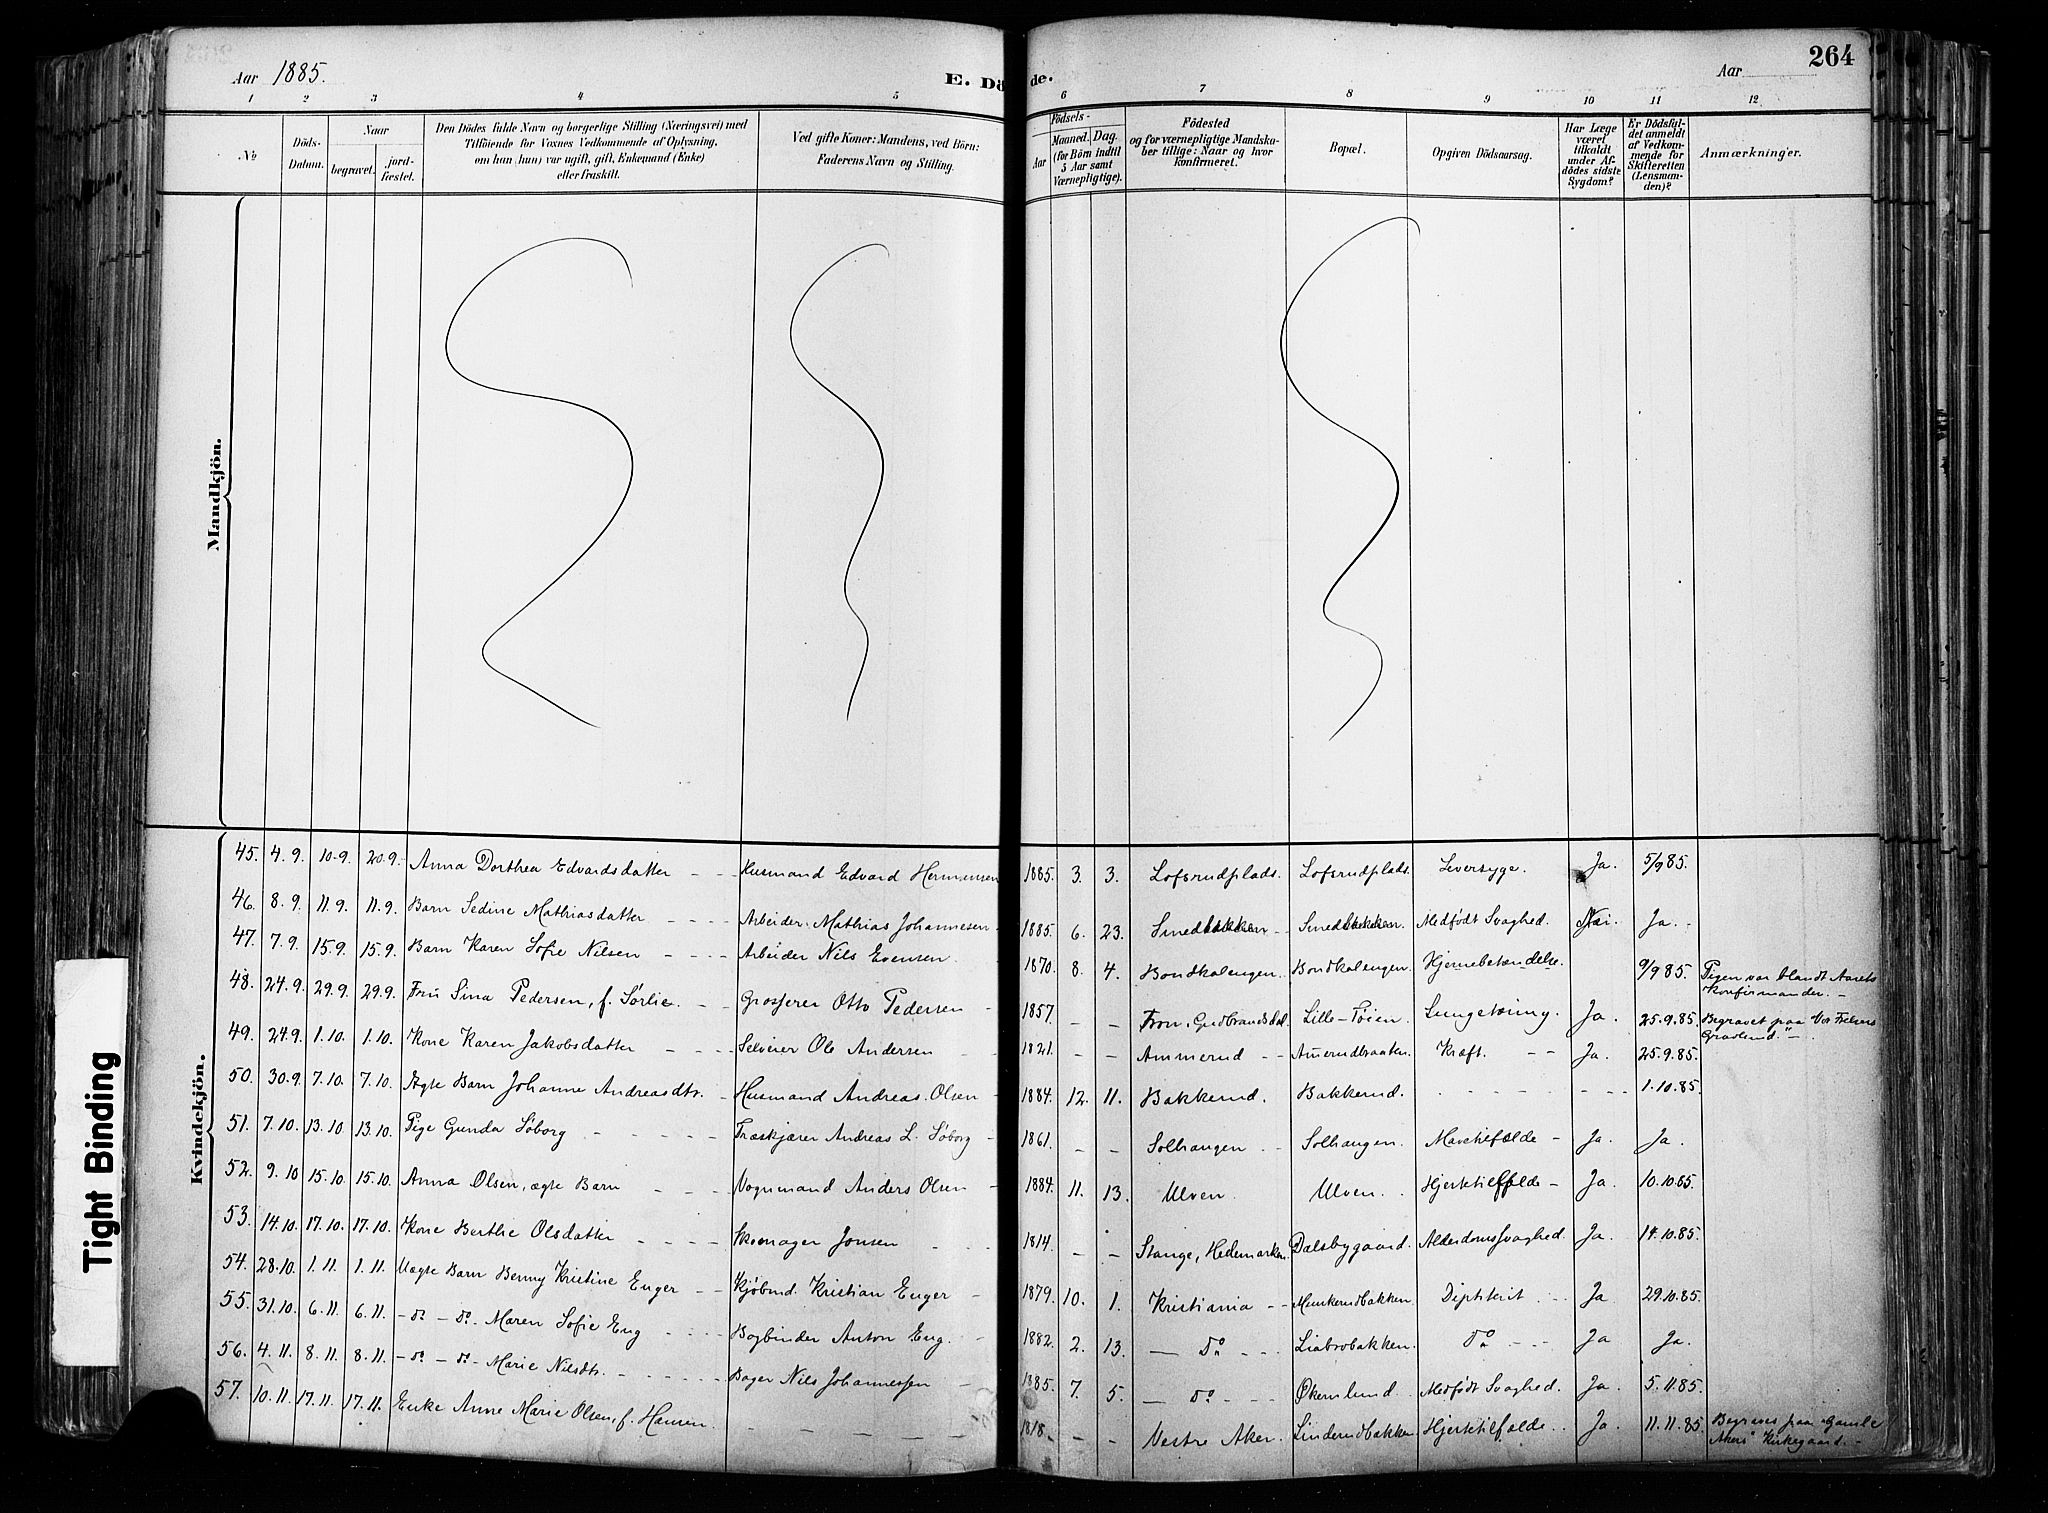 Aar 1885.
E. Dö
de.
Aar
264
1 2 3 4 5 6 7 8 9 10 11 12
No
Döds-Datum.
Naar
begravet.
jord-fæstet.
Den Dödes fulde Navn og borgerlige Stilling (Næringsvei) med
Tilföiende for Voxnes Vedkommende af Oplysning,
om han (hun) var ugift, gift, Enkemand (Enke)
eller fraskilt.
Ved gifte Koner: Mandens, ved Börn:
Faderens Navn og Stilling.
Födsels-
Aar
Maaned. Dag.
(for Börn indtil
5 Aar samt
Værnepligtige).
Födested
og for værnepligtige Mandska-
ber tillige: Naar og hvor
konfirmeret.
Bopæl.
Opgiven Dödsaarsag.
Har Læge
været
tilkaldt
under Af-
dödes sidste
Sygdom?
Er Dödsfal-
det anmeldt
af Vedkom-
mende for
Skifteretten
(Lensman-
den)?
Anmærkninger.
Mandkjön.
Kvindekjön.
45. 4.9. 10.9. 20.9. Anna Dorthea Edvardsdatter - - Husmand Edvard Hermansen 1885. 3. 3. Lofsrudplads. Lofsrudplads. Leversyge. Ja. 5/9 85.
46. 8.9. 11.9. 11.9. Barn Sedine Mathiasdatter - - - - Arbeider Mathias Johannesen 1885. 6. 23. Smedbakken - - Smedbakken. Medfödt Svaghed. Nei Ja. -
47. 7.9. 15.9. 15.9. Barn Karen Sofie Nilsen - - - - Arbeider Nils Evensen. 1870. 8. 4. Bondkalengen. Bondkalengen. Hjernebetændelse. 9/9 85. Pigen var blandt Aarets Konfirmander. -
48. 24.9. 29.9. 29.9. Fru Sina Pedersen, f. Sørlie. - - Grosserer Otto Pedersen - 1857. - - Fron, Gudbrandsdal. Lille-Tøien. Lungetæring. Ja. 25.9.85. Begravet paa Vor Frelsers Gravlund. -
49. 24.9. 1.10. 1.10. Kone Karen Jakobsdatter - - - - Selveier Ole Andersen - 1821. - - Ammerud - - Amerudbraaten. Kræft. - - Ja. 25.9.85.
50. 30.9. 7.10. 7.10. Ægte Barn Johanne Andreasdtr. - Husmand Andreas Olsen - 1884. 12. 11. Bakkerud. Bakkerud. - - - - - - 1.10.85.
51. 7.10. 13.10. 13.10. Pige Gunda Söborg - - - - - Træskjærer Andreas L. Söborg - 1861. - - Solhaugen - - Solhaugen. Mavetilfælde - Ja. Ja.
52. 9.10 15.10. 15.10. Anna Olsen, ægte Barn - - - Vognmand Anders Olsen - 1884. 11. 13. Ulven. Ulven. Hjertetilfælde - Ja. 10.10.85.
53. 14.10. 17.10. 17.10. Kone Berthe Olsdatter - - - - Skomager Jonsen - - - 1814. - - Stange, Hedemarken. Dalsbygaard. Alderdomssvaghed. Ja. 14.10.85.
54. 28.10. 1.11. 1.11. Uægte Barn Benny Kristine Enger - - Kjöbmd. Kristian Enger - 1879. 10. 1. Kristiania - - Munkerudbakken. Diptherit - - Ja 29.10.85.
55. 31.10. 6.11. 6.11. - do - do - Maren Sofie Eng - - - - Bogbinder Anton Eng. - 1882. 2. 13. - Do - - - Liabrobakken. Do - - - Ja Ja.
56. 4.11. 8.11. 8.11. - do - do - Marie Nilsdtr. - - - - - - Bager Nils Johannessen - 1885. 7. 5. - Do - - - Økernlund. Medfödt Svaghed. Ja. 5.11.85.
57. 10.11. 17.11. 17.11. Enke Anne Marie Olsen, f. Hansen. - - - - - 1818. - - Vestre Aker. Linderudbakken Hjertetilfælde. Ja. 11.11.85. Begraves paa "Gamle Akers" Kirkegaard. -
Tight Binding